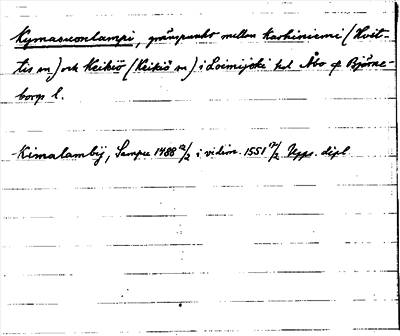 Kymasuonlampi, gränspunkt mellan Karhiniemi (Hvit-
tis sn) och Keikiö (Keikiö sn) i Loimijoki hd Åbo o Björne-
borgs l.
Kimalambij, Sampu 1488 12/2 i vidim. 1551 7/2 Upps. dipl